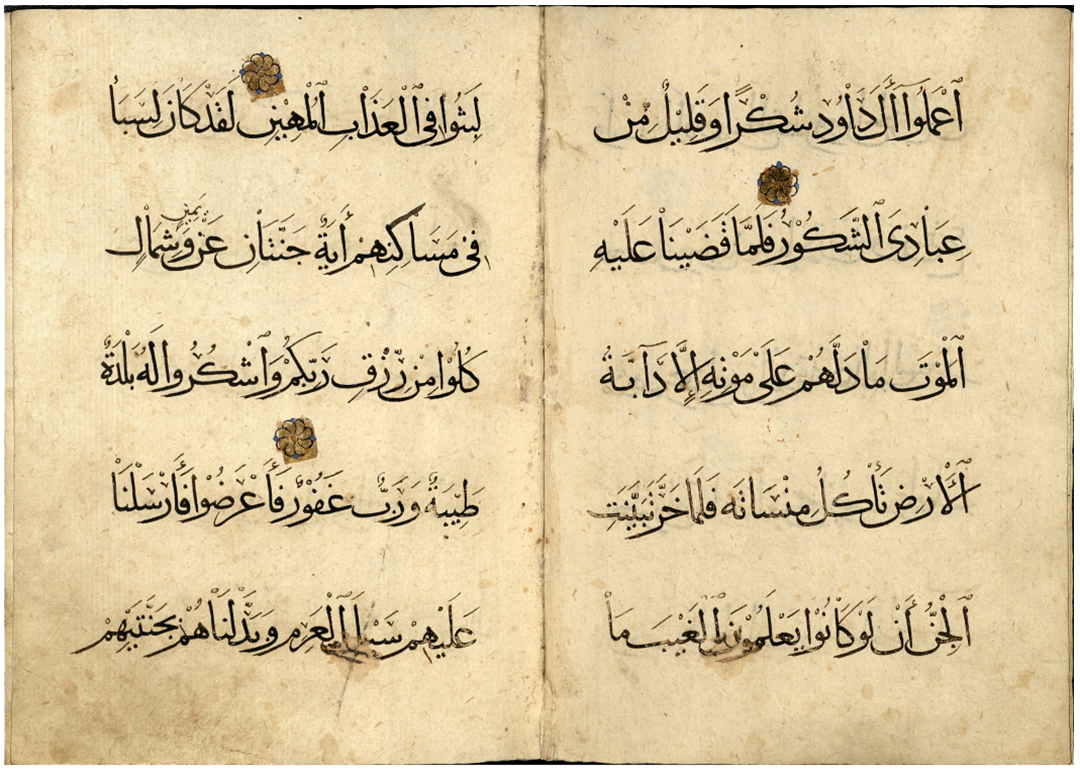 ٱعْمَلُوٓا أَلَ دَاوُدَ شُكْرًا وَقَلِيْلٌ مِّنْ
عِبَادِىَ ٱلشَّكُوْرُ فَلَمَّا قَضَيْنَا عَلَيْهِ
ٱلْمَوْتَ مَا دَلَّهُمْ عَلَىٰ مَوْتِهِ إِلَّا دَآبَّةُ
ٱلْأَرْضِ تَأْكُلُ مِنْسَاتَهُ فَلَمَّا خَرَّ تَبَيَّنَتِ
ٱلْجِنُّ أَنْ لَوْ كَانُوْا يَعْلَمُوْنَ ٱلْغَيْبَ مَا
لَبِثُوْا فِى ٱلْعَذَابِ ٱلْمُهِيْنِ لَقَدْ كَانَ لِسَبَأ
فِى مَسَاكِنِهِمْ أَيَةٌ جَنَّتَانِ عَنْ يَمِيْنٍ وَشِمَالٍ
كُلُوْا مِنْ رِّزْقِ رَبِّكُمْ وَٱشْكُرُوا لَهُ بَلْدَةٌ
طَيِّبَةٌ وَرَبٌّ غَفُوْرٌ فَأَعْرَضُوْا فَأَرْسَلْنَا
عَلَيْهِمْ سَيْلَ ٱلْعَرِمِ وَبَدَّلْنَاهُمْ بِجَنَّتَيْهِمْ